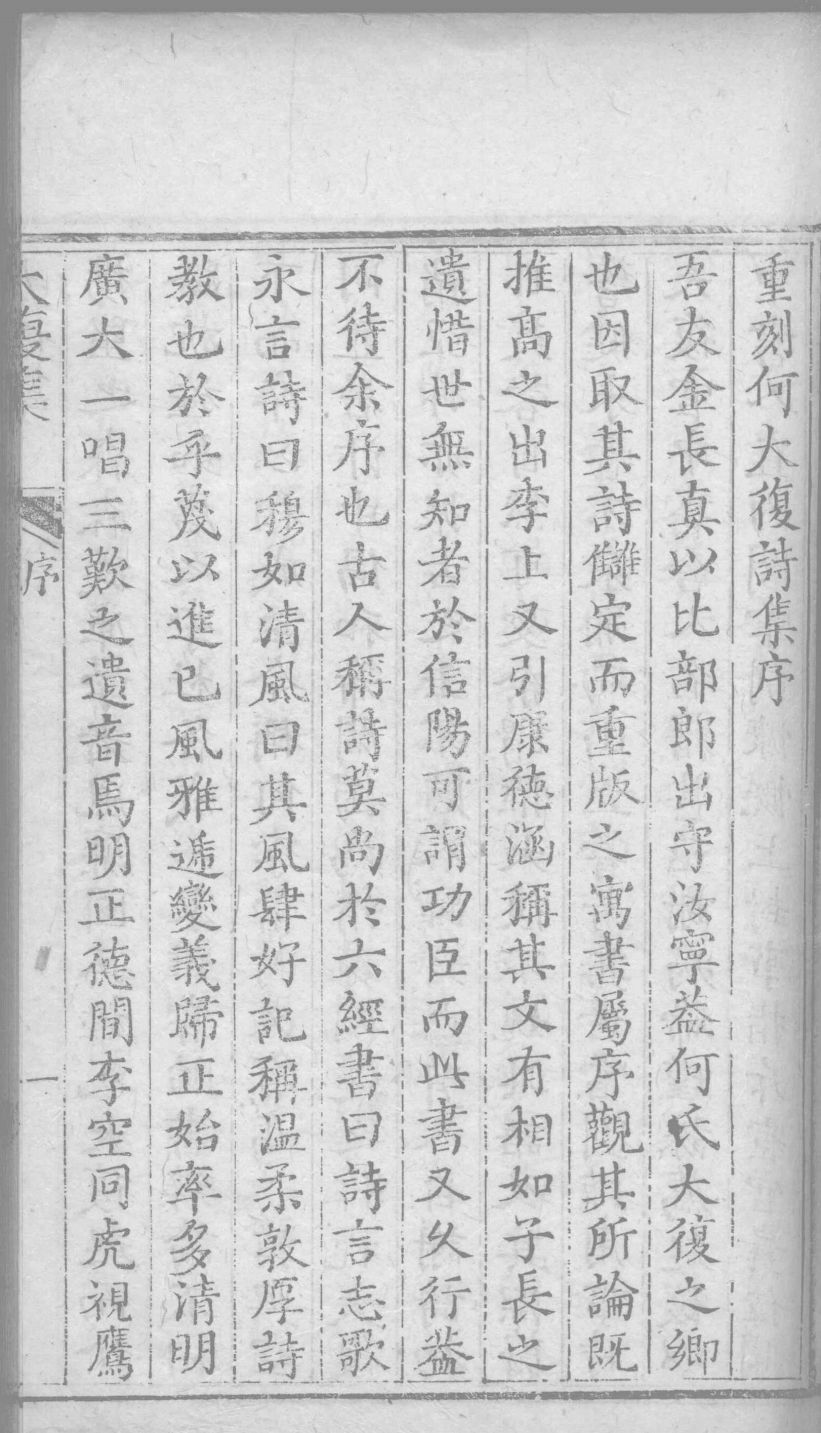 重刻何大復詩集序
吾友金長真以比部郎出守汝寧葢何氏大復之鄉
也因取其詩讎定而重版之寓書屬序觀其所論既
推髙之出李上又引康德涵稱其文有相如子長之
遺惜世無知者於信陽可謂功臣而此書又乆行葢
不待余序也古人稱詩莫尚於六經書曰詩言志歌
永言詩曰穆如清風曰其風肆好記稱溫柔敦厚詩
教也於乎蔑以進已風雅遞變義歸正始率多清明
廣大一唱三歎之遺音焉明正德間李空同虎視鷹
大復集 序 一